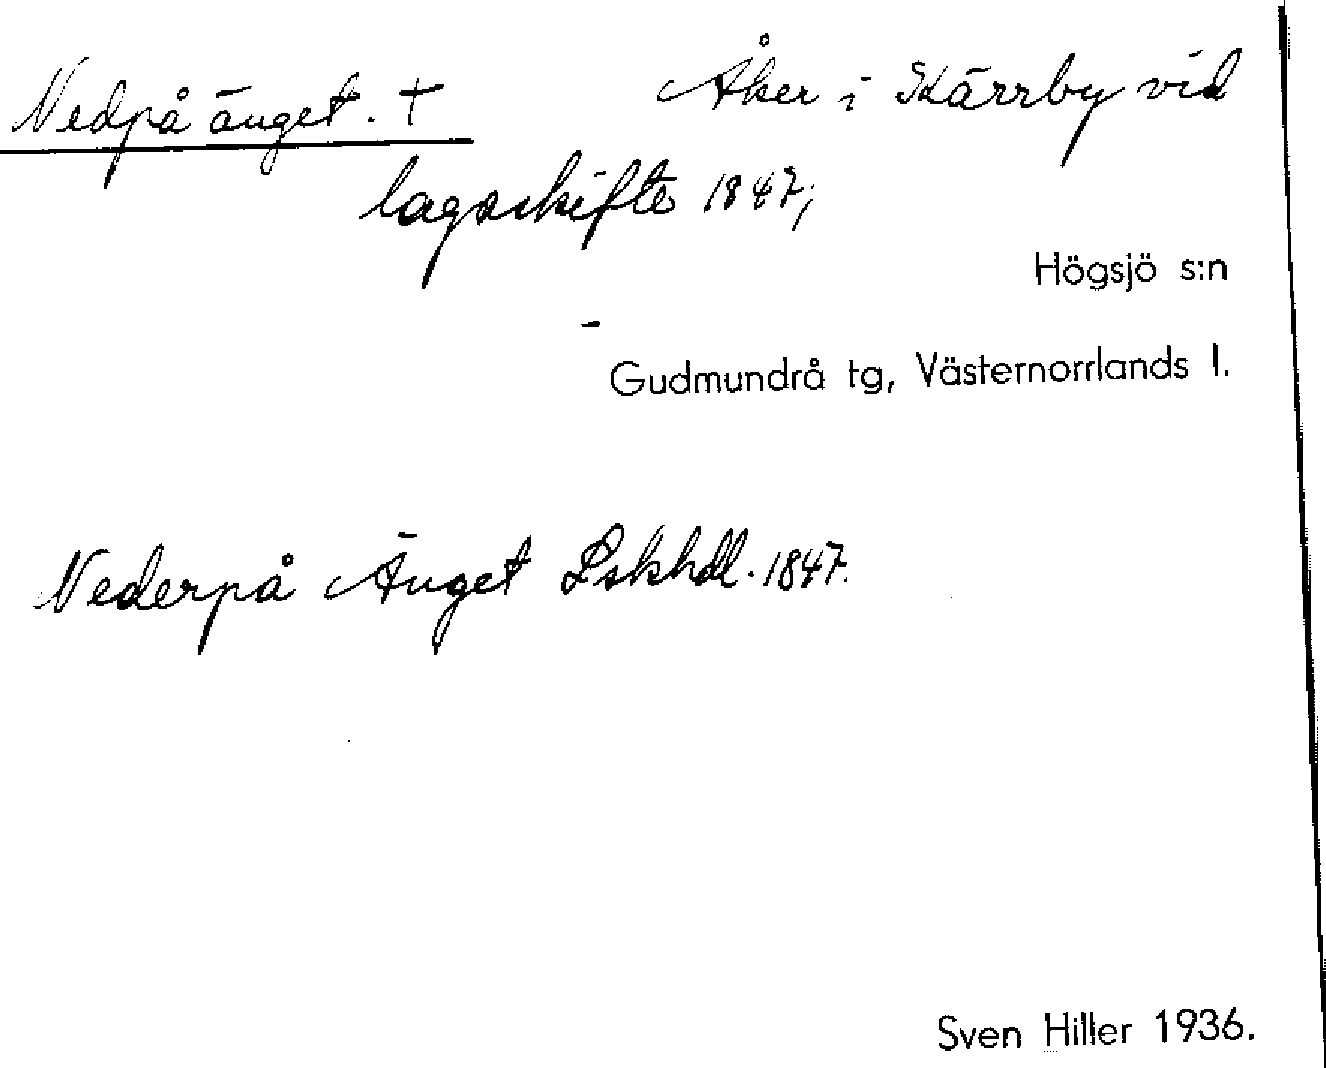 Nedpå änget. + Åker i Kärrby vid
lagaskifte 1847;
Högsjö s:n
Gudmundrå tg, Västernorrlands l.
Nederpå Änget Lskhdl. 1847.
Sven Hiller 1936.